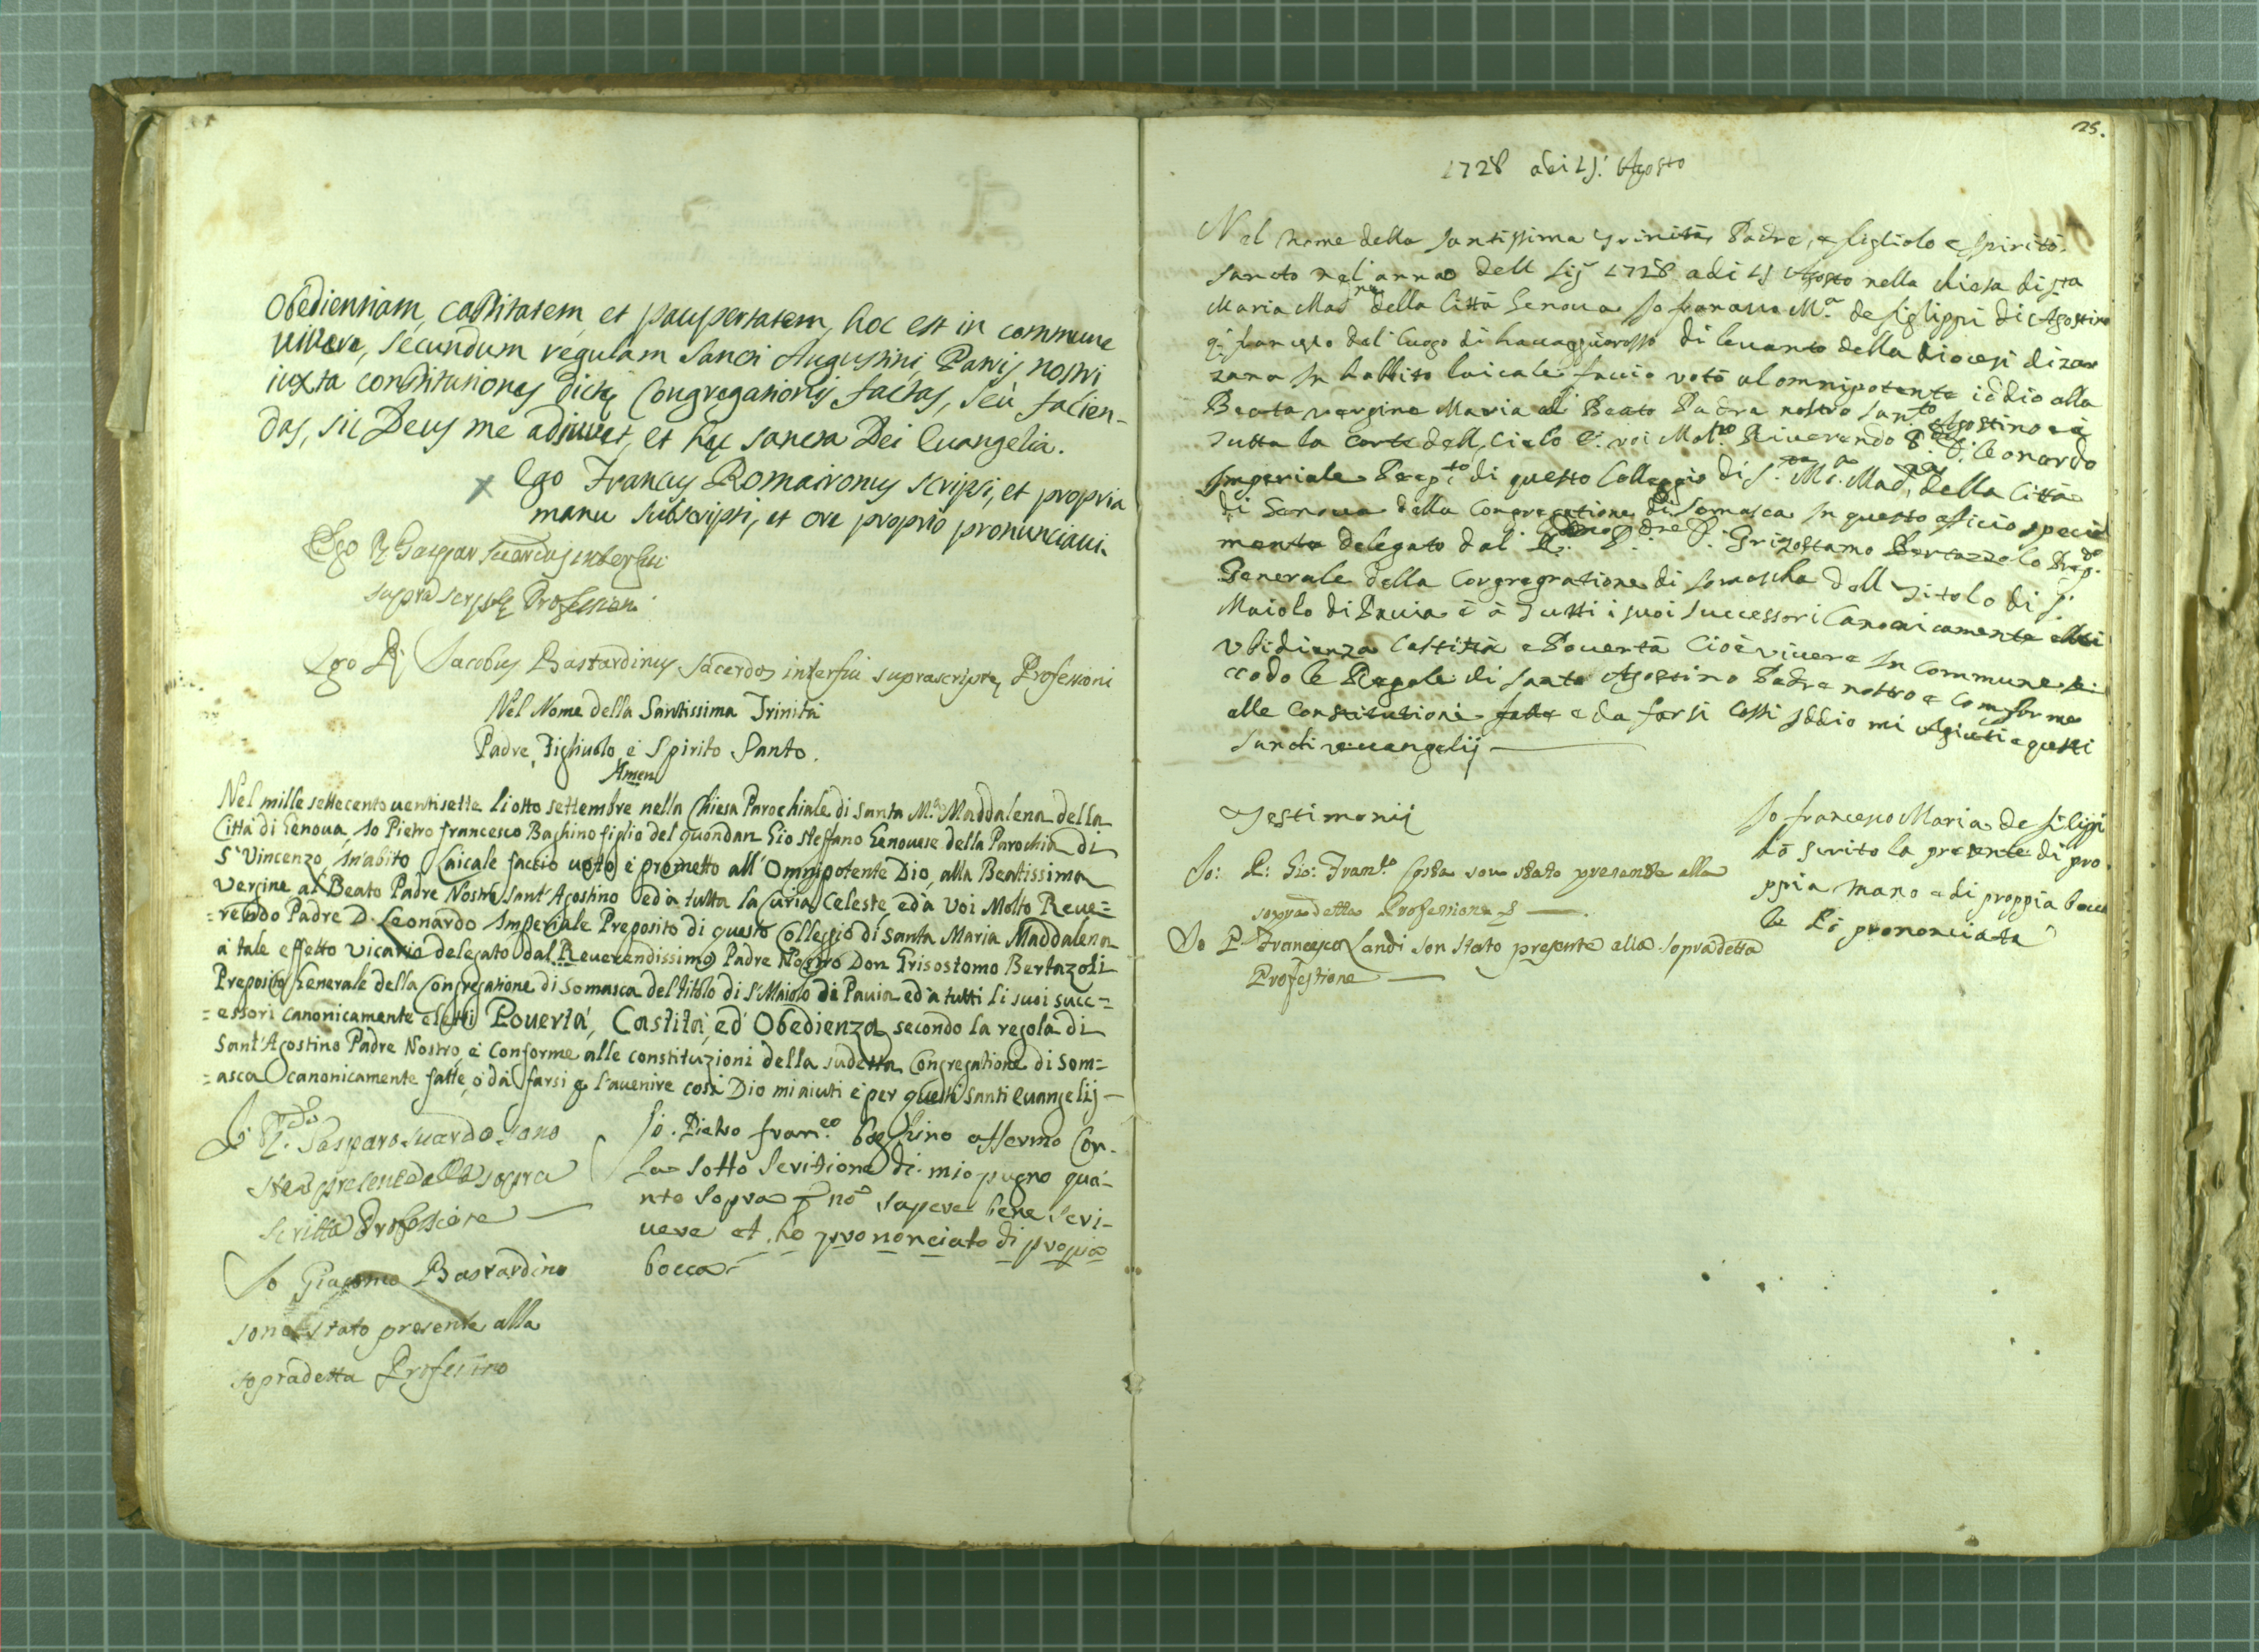 Obedientiam, castitatem, et paupertatem, hoc est in commune
vivere, secundum regulam Sancti Augustini, Patris nostri
iuxta constitutiones dictę Congregationis factas, seù facien-
das, sic Deus me adiuvet, et hęc sancta Dei Euangelia.
Ego Francus Romaironus scripsi, et propria
manu subscripsi, et ore proprio pronunciaui.
Ego D. Gaspar Suardus interfui
suprascriptę Professioni
Ego D. Jacobus Bastardinus Sacerdos interfui suprascriptę Professioni
Nel Nome della Santissima Trinità
Padre, Figliuolo, e Spirito Santo.
Amen
Nel mille settecento uentisette li otto settembre nella Chiesa Parochiale di Santa M.ª Maddalena della
Città di Genoua, Io Pietro francesco Baghino figlio del quondan Gio Steffano Genouese della Parochia di
S. Vincenzo, In abito Laicale faccio uoto, e prometto all'Omnipotente Dio, alla Beatissima
Vergine, al Beato Padre Nostro Sant'Agostino ed à tutta la Curia Celeste, ed à Voi Molto Reue=
=rendo Padre D. Leonardo Imperiale Preposito di questo Colleggio di Santa Maria Maddalena
a tale effetto Vicario delegato dal Reuerendissimo Padre Nostro Don Grisostomo Bertazoli
Preposito Generale della Congregatione di Somasca del titolo di S. Maiolo di Pauia ed à tutti li suoi succ=
=essori canonicamente eletti Pouertà, Castità, ed Obedienza secondo la regola di
Sant'Agostino Padre Nostro, e Conforme alle constituzioni della sudetta Congregatione di Som=
=asca canonicamente fatte, o dà farsi p l'auenire così Dio mi aiuti e per questi Santi euangelij
Io D. Gasparo Suardo sono
stato presente alla sopra
scritta Professione
Io Giacomo Bastardino
sono stato presente alla
sopradetta Professino
Io. Pietro fran.co baghino affermo Con
La sotto Scritione di mio pugno qua-
nto Sopra p nō sapere bene Scri-
uere et ho prononciato di propia
bocca
25.
1728 adi 15. Agosto
Nel nome della santissima trinità, Padre, e figliolo e spirito
santo nel anno dell Sig 1728 adi 15 Agosto nella chiesa di sta
Maria Mad.na della Città Genoua Io franco M.ª de figlippi di Agostino
q. del luogo di di leuanto della diocesi di zar
zana In habbito laicale faccio votō al omnipotente iddio alla
Beata vergine Maria al Beato Padre nostro san.to Agostino e à
tutta la corte dell cielo e voi Mol.to Riuerendo P. D. leonardo
Imperiale Prep.to di questo Colleggio di S.ta M.ª Mad.na della Città
di Genoua della Congregatione di Somasca In questo officio special
mente delegato dal R. P. D. Grizostamo Bertazzolo Prep.to
Generale della Congregatione di somascha dell titolo di S.
Maiolo di Pauia è à tutti i suoi successori Canonicamente eletti
vbidienza Castità e Pouertà Cioè viuere In Commune se
ccodo le Regole di santo Agostino Padre nostro e Comforme
alle Constitutioni fatte e da farsi Cossi Iddio mi Agiuti e questi
sancti vuangelij
Testimonij
Io: D: Gio: Fran.co Costa son stato presente alla
sopradetta Professione
Io P. Francesco Landi son stato presente alla sopradetta
Professione
Io francesco Maria de filippi
hò scrito la presente di pro
ppia mano e di proppia bocca
le hò prononciate